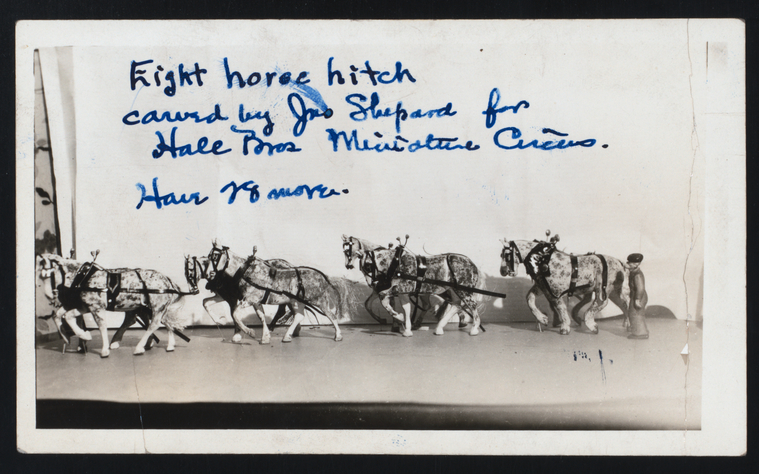 Eight horse hitch
carved by Jno Shepard for
Hall Bros Miniature Circus.
Have 28 more.